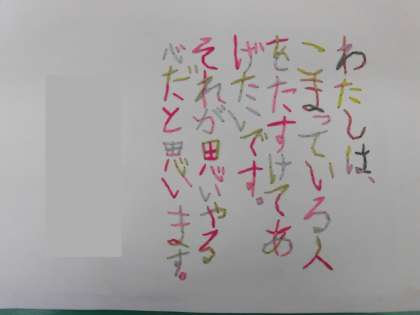 わたしは、
こまっている人
をたすけてあ
げたいです。
それが思いやる
心だと思います。